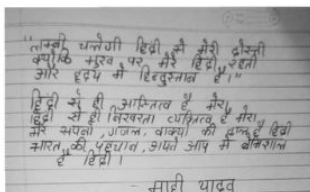 "लम्बी चलेगी हिंदी से मेरी दोस्ती
क्योंकि मुख पर मेरे हिंदी रहती
और हृदय में हिन्दुस्तान है।"
हिंदी से ही अस्तित्व है मेरा
हिंदी से ही निखरता व्यक्तित्व है मेरा
मेरे सपनों, गजल, वाक्यों की है हिंदी
भारत की पहचान, अपने आप में
है हिंदी।
- माही यादव